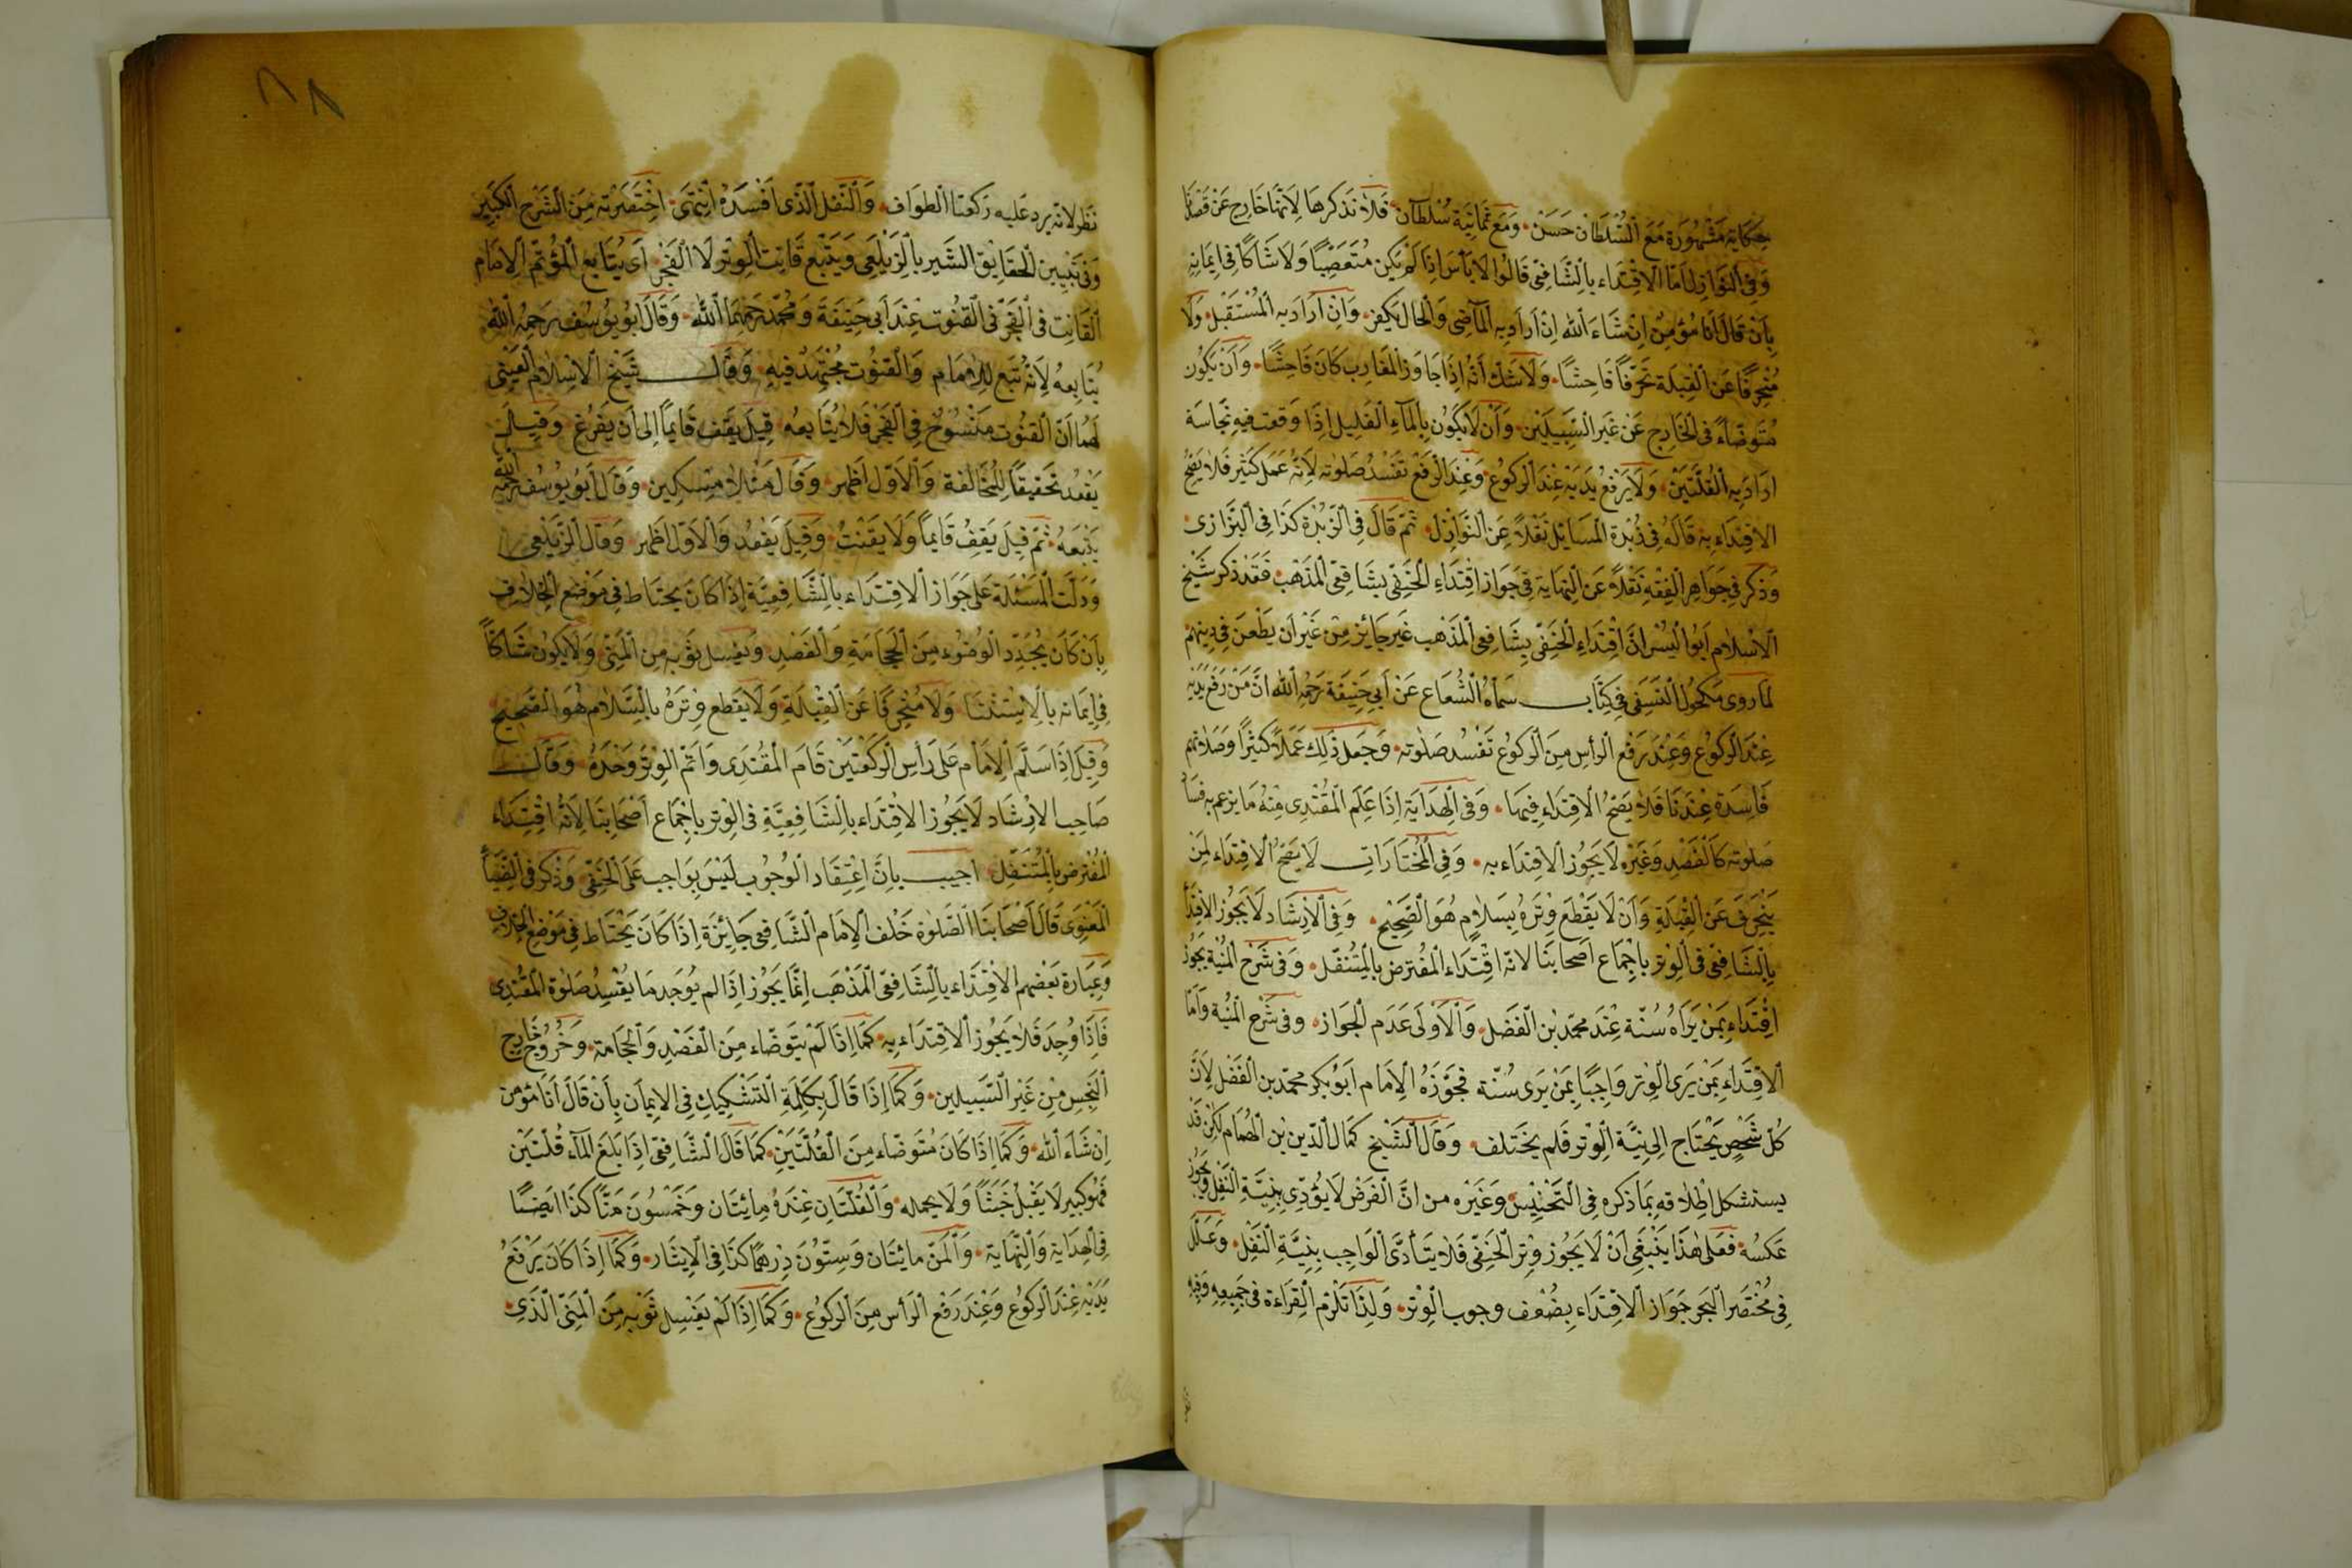 حكاية مشهورة مع السلطان حسن ومع ثمانية سلطان فلا نذكرها لانها خارج عن
وفي النوازل اما الاقتداء بالشافعي قالوا لا بأس اذا لم يكن متعصبا ولا شاكا في ايمانه
بان قال انا مؤمن ان شاء الله ان اراد به الماضي والحال يكفر وان اراد به المستقبل ولا
منحرفا عن القبلة تحرفا فاحشا ولا شك أنه اذا جاوز المغارب كان فاحشا وان يكون
متوضأ في الخارج عن غير السبيلين وأن لا يكون بالماء القليل اذا وقعت فيه نجاسة
اراد به القلتين ولا يرفع يديه عند الركوع وعند الرفع تفسد صلوته لأنه عمل كثير فلا يصح
الاقتداء به قاله في زبدة المسائل نقلا عن النوازل ثم قال في الزبدة كذا في البزازي
وذكر في جواهر الفقه نقلا عن النهاية في جواز اقتداء الحنفي بشافعي المذهب فقد ذكر شيخ
الاسلام ابو اليسر ان اقتداء الحنفي بشافعي المذهب غير جائز من غير أن يطعن في دينهم
لما روى مكحول النسفي في كتاب سماه الشعاع عن أبي حنيفة رحمه الله ان من رفع يديه
عند الركوع وعند رفع الرأس من الركوع تفسد صلوته وجعل ذلك عملا كثيرا وصلاتهم
فاسدة عندنا فلا يصح الاقتداء فيها وفي الهداية اذا علم المقتدى منه ما يزعم به فساد
صلوته كالفصد وغيره لا يجوز الاقتداء به وفي المختارات لا يصح الاقتداء لمن
ينحرف عن القبلة وأن لا يقطع وتره بسلام هو الصحيح وفي الارشاد لا يجوز الاقتداء
بالشافعي في الوتر باجماع اصحابنا لانه اقتداء المفترض بالمتنفل وفي شرح المنية يجوز
اقتداء بمن يراه سنة عند محمد بن الفضل والأولى عدم الجواز وفي شرح المنية واما
الاقتداء بمن يرى الوتر واجبا بمن يرى سنة فجوزه الامام أبو بكر محمد بن الفضل لأن
كل شخص يحتاج الى نية الوتر فلم يختلف وقال الشيخ كمال الدين بن الهمام لكن قد
يستشكل اطلاقه بما ذكره في التجنيس وغيره من ان الفرض لا يؤدى بنية النفل ويجوز
عكسه فعلى هذا ينبغي أن لا يجوز وتر الحنفي فلا يتأدى الواجب بنية النفل وعلل
في مختصر البحر جواز الاقتداء بضعف وجوب الوتر ولذا تلزم القراءة في جميعه وفيه
نظر لانه يرد عليه ركعتا الطواف والنفل الذى افسده انتهى اختصرته من الشرح الكبير
وفي تبيين الحقايق الشهير بالزيلعي ويتبع قانت الوتر لا الفجر أى يتابع المؤتم الامام
القانت في الفجر في القنوت عند أبي حنيفة ومحمد رحمهما الله وقال ابو يوسف رحمه الله
يتابعه لأنه تبع للامام والقنوت مجتهد فيه وقال شيخ الاسلام العيني
لهما ان القنوت منسوخ في الفجر فلا يتابعه قيل يقف قايما الى أن يفرغ وقيل
يقعد تحقيقا للمخالفة والأول اظهر وقال منلا مسكين وقال أبو يوسف رحمه الله
يتبعه ثم قيل يقف قايما ولا يقنت وقيل يقعد والأول اظهر وقال الزيلعي
ودلت المسئلة على جواز الاقتداء بالشافعية إذا كان يحتاط في موضع الخلاف
بأن كان يجدد الوضوء من الحجامة والفصد ويغسل ثوبه من المني ولا يكون شاكا
في ايمانه بالاستثنا ولا منحرفا عن القبلة ولا يقطع وتره بالسلام هو الصحيح
وقيل اذا سلم الامام على رأس الركعتين قام المقتدى واتم الوتر وحده وقال
صاحب الارشاد لا يجوز الاقتداء بالشافعية في الوتر باجماع اصحابنا لأنه اقتداء
المفترض بالمتنفل اجيب بان اعتقاد الوجوب ليس بواجب على الحنفي وذكر في الضياء
المعنوى قال أصحابنا الصلوة خلف الامام الشافعي جائزة اذا كان يحتاط في موضع الخلاف
وعبارة بعضهم الاقتداء بالشافعي المذهب انما يجوز اذا لم يوجد ما يفسد صلوة المقتدى
فاذا وجد فلا يجوز الاقتداء به كما اذا لم يتوضاء من الفصد والحجامة وخروج خارج
النجس من غير السبيلين وكما اذا قال بكلمة التشكيك في الايمان بأن قال أنا مؤمن
ان شاء الله وكما اذا كان متوضاء من القلتين كما قال الشافعي اذا بلغ الماء قلتين
فهو كبير لا يقبل خبثا ولا يحمله والقلتان عنده مائتان وخمسون منّا كذا ايضا
في الهداية والنهاية والمن مائتان وستون درهما كذا في الايثار وكما اذا كان يرفع
يديه عند الركوع وعند رفع الرأس من الركوع وكما اذا لم يغسل ثوبه من المني الذى